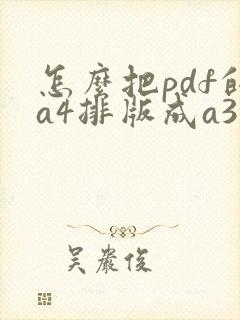 怎麼把pdf的
a4排版成a3
吴嚴俊